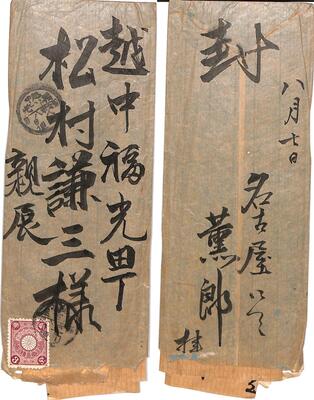 越中福光町
松村謙三様
親展
封
八月七日
名古屋にて
薫郎
桂